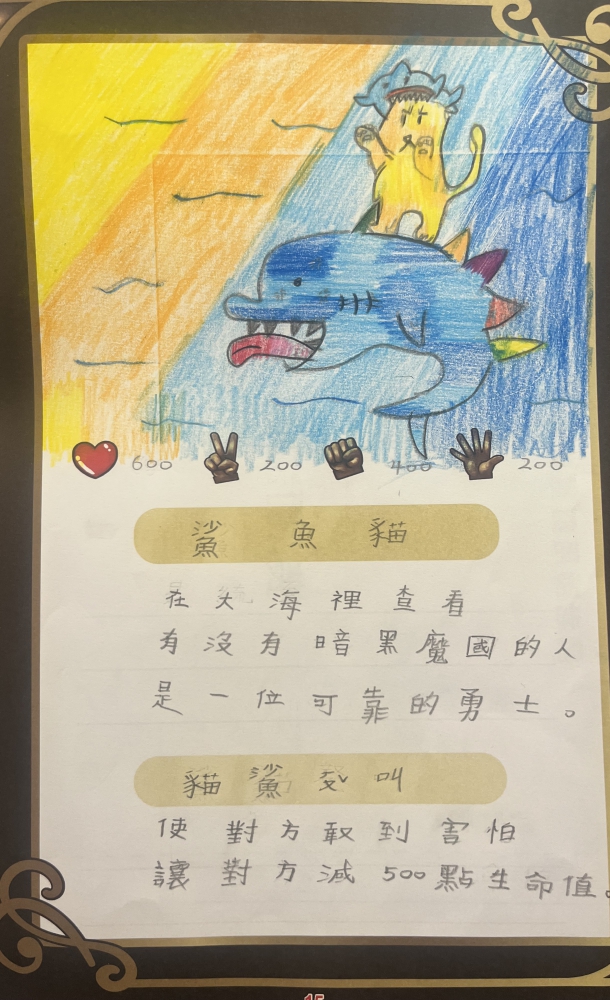 600 200 400 200
鯊魚貓
在大海裡查看
有沒有暗黑魔國的人
是一位可靠的勇士。
貓鯊 叫
使對方 到害怕
讓對方減500點生命值。
15